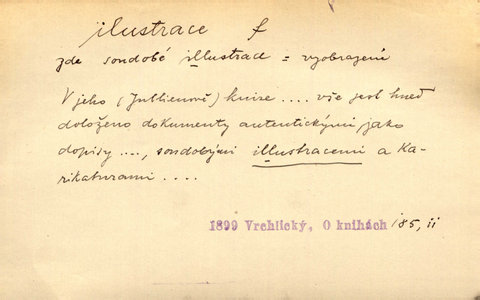 ilustrace f
zde soudobé illustrace = vyobrazení
V jeho (Jullienově) knize .... vše jest hned
doloženo dokumenty autentickými, jako
dopisy ...., soudobými illustracemi a ka-
rikaturami ....
1899 Vrchlický, O knihách 185, ii